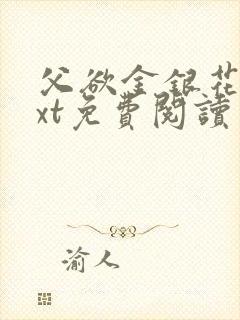 父欲金銀花
xt免費閱讀
渝人